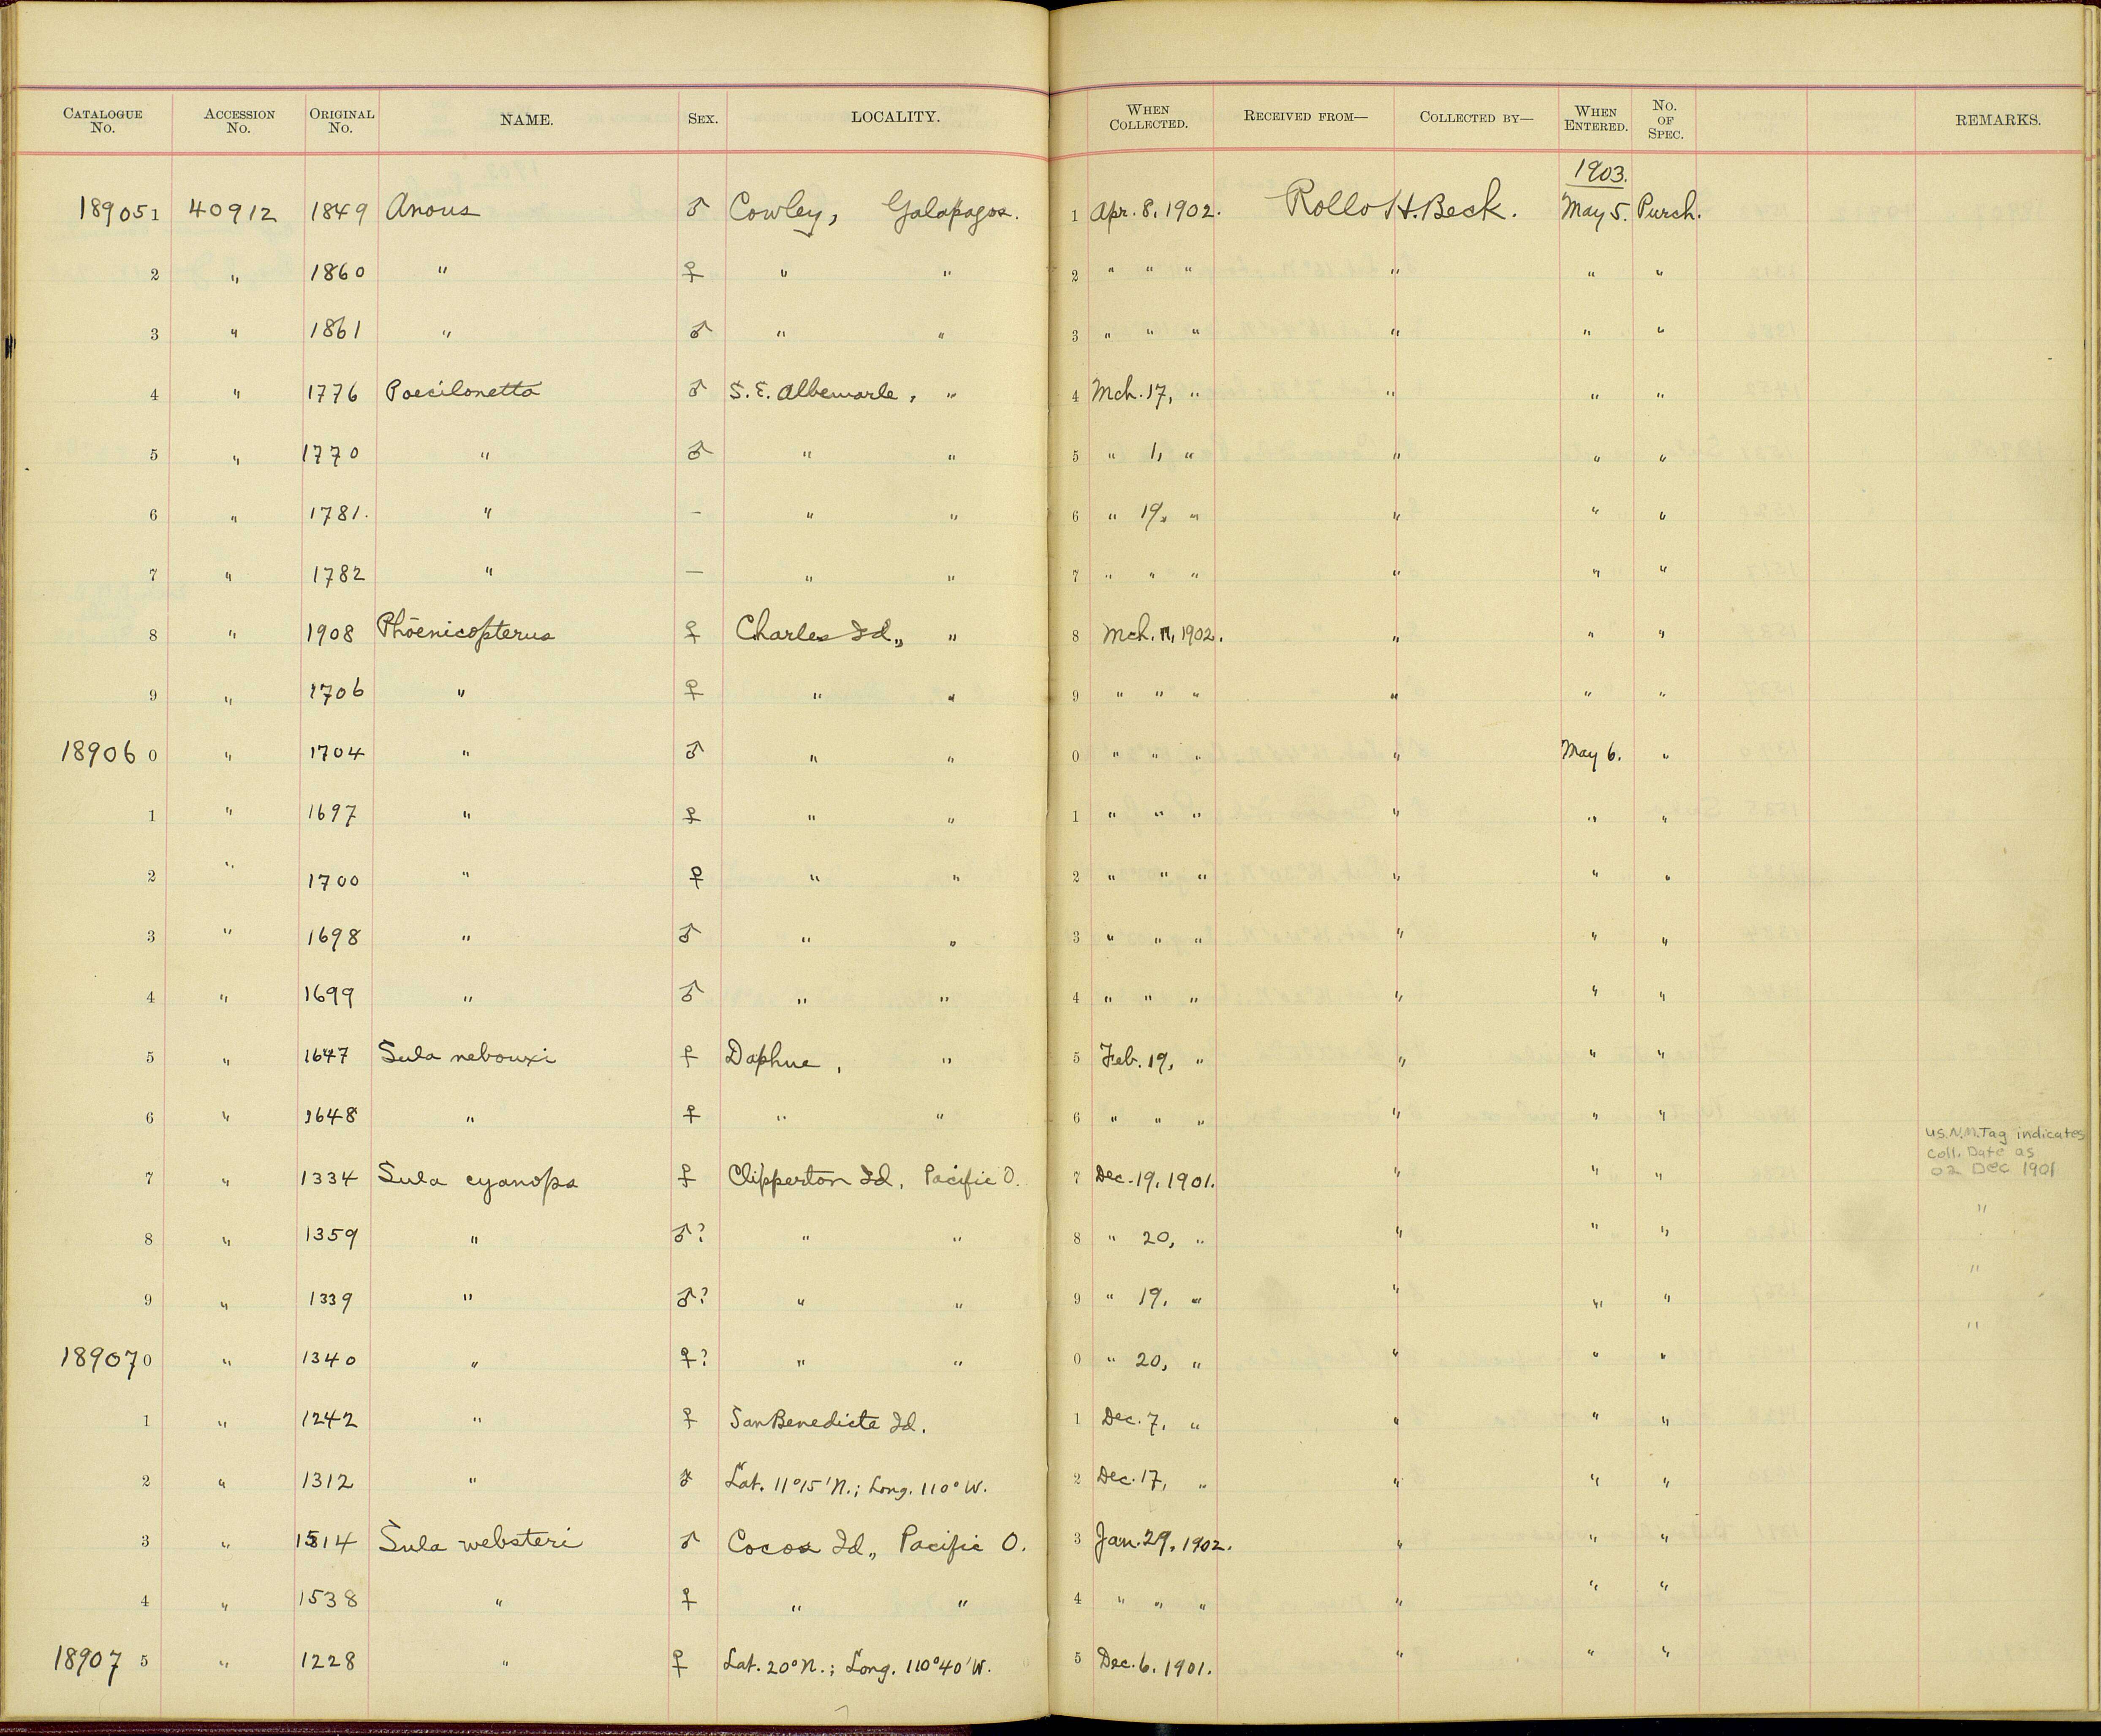 CATALOGUE No. ACCESSION No. ORIGINAL No. NAME. SEX. LOCALITY. WHEN COLLECTED. RECEIVED FROM— COLLECTED BY— WHEN ENTERED. No. OF SPEC. REMARKS.
1903.
189051 40912 1849 Anous ♂ Cowley, Galapagos. 1 Apr. 8, 1902. Rollo H. Beck. May 5. Purch.
2 " 1860 " ♀ " " 2 " " " " " "
3 " 1861 " ♂ " " 3 " " " " " "
4 " 1776 Poecilonetta ♂ S. E. Albemarle, " 4 Mch. 17, " " " "
5 " 1770 " ♂ " " 5 " 1, " " " "
6 " 1781. " – " " 6 " 19, " " " "
7 " 1782 " — " " 7 " " " " " "
8 " 1908 Phoenicopterus ♀ Charles Id., " 8 Mch. 1902. " " "
9 " 1706 " ♀ " " 9 " " " " " "
18906 0 " 1704 " ♂ " " 0 " " " " May 6. "
1 " 1697 " ♀ " " 1 " " " " " "
2 " 1700 " ♀ " " 2 " " " " " "
3 " 1698 " ♂ " " 3 " " " " " "
4 " 1699 " ♂ " " 4 " " " " " "
5 " 1647 Sula nebouxi ♀ Daphne, " 5 Feb. 19, " " " "
6 " 1648 " ♀ " " 6 " " " " " "
7 " 1334 Sula cyanops ♀ Clipperton Id, Pacific O. 7 Dec. 19, 1901. " " " U.S.N.M. Tag indicates
Coll. Date as
02 Dec 1901
8 " 1359 " ♂? " " 8 " 20, " " " " "
9 " 1339 " ♂? " " 9 " 19, " " " " "
18907 0 " 1340 " ♀? " " 0 " 20, " " " " "
1 " 1242 " ♀ San Benedicte Id. 1 Dec. 7, " " " "
2 " 1312 " ♂ Lat. 11°15'N.; Long. 110° W. 2 Dec. 17, " " " "
3 " 1514 Sula websteri ♂ Cocos Id., Pacific O. 3 Jan. 29, 1902. " " "
4 " 1538 " ♀ " " 4 " " " " " "
18907 5 " 1228 " ♀ Lat. 20° N.; Long. 110°40'W. 5 Dec. 6, 1901. " " "